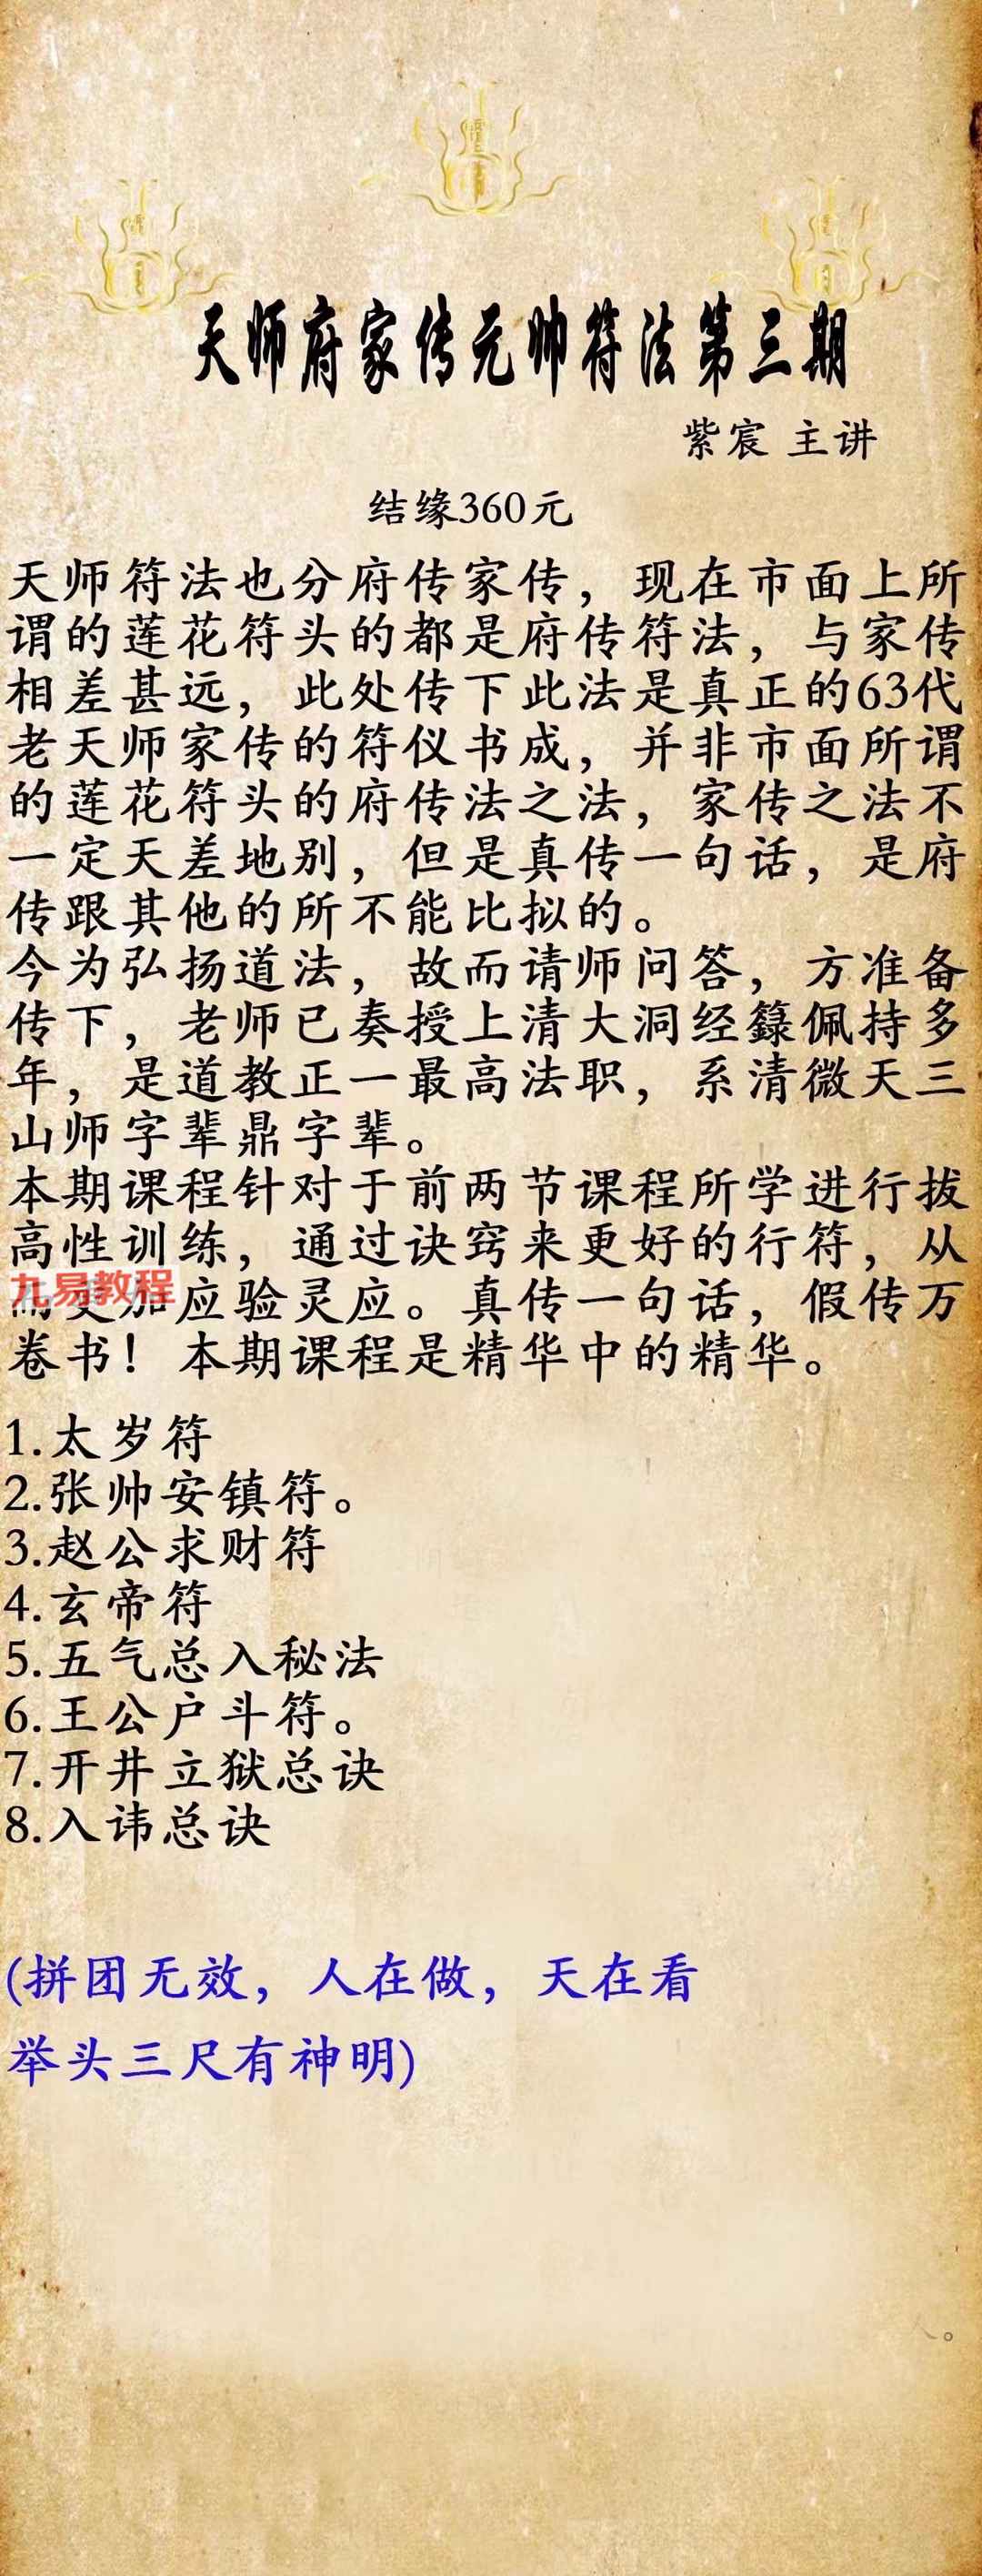 天师府家传元帅符法第三期
紫宸 主讲
结缘360元
天师符法也分府传家传，现在市面上所
谓的莲花符头的都是府传符法，与家传
相差甚远，此处传下此法是真正的63代
老天师家传的符仪书成，并非市面所谓
的莲花符头的府传法之法，家传之法不
一定天差地别，但是真传一句话，是府
传跟其他的所不能比拟的。
今为弘扬道法，故而请师问答，方准备
传下，老师已奏授上清大洞经籙佩持多
年，是道教正一最高法职，系清微天三
山师字辈鼎字辈。
本期课程针对于前两节课程所学进行拔
高性训练，通过诀窍来更好的行符，从
九易教程
而更加应验灵应。真传一句话，假传万
卷书！本期课程是精华中的精华。
1.太岁符
2.张帅安镇符。
3.赵公求财符
4.玄帝符
5.五气总入秘法
6.王公户斗符。
7.开井立狱总诀
8.入讳总诀
(拼团无效，人在做，天在看
举头三尺有神明)